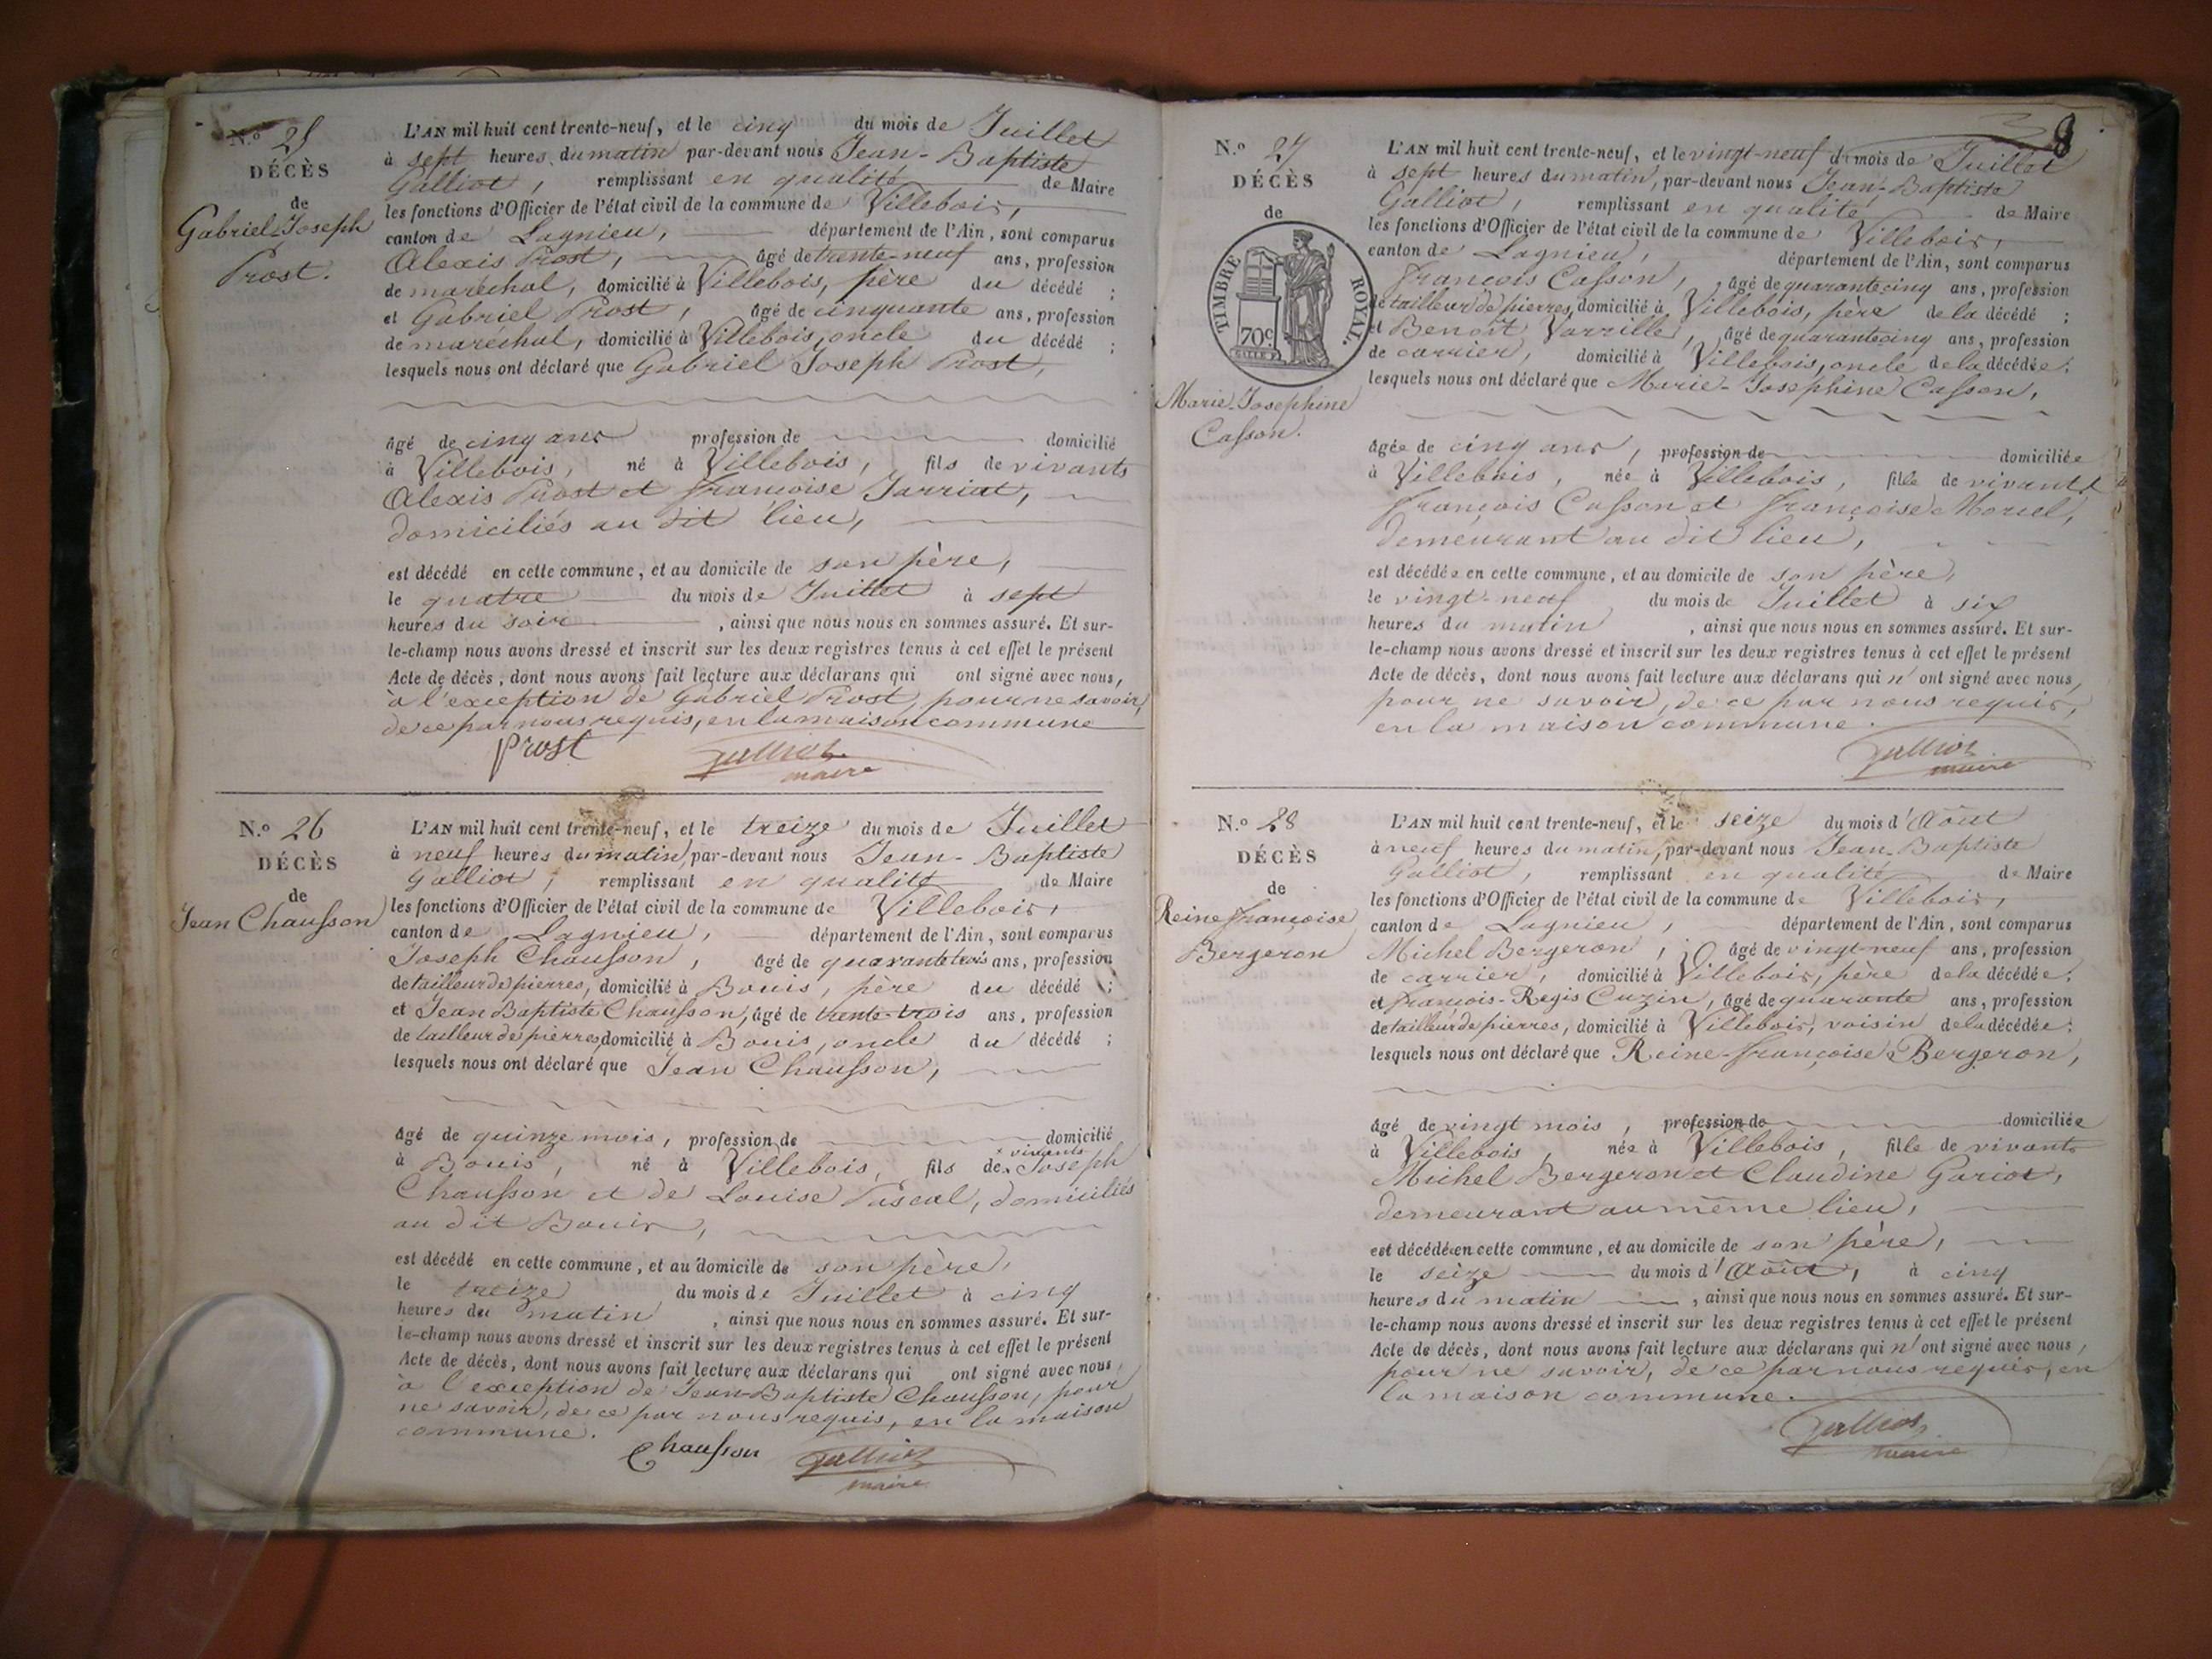 N.o 25
DÉCÈS
de
Gabriel-Joseph
Prost.
L'AN mil huit cent trente-neuf, et le cinq du mois de Juillet
à sept heures du matin par-devant nous Jean-Baptiste
Galliot, remplissant en qualité de Maire
les fonctions d'Officier de l'état civil de la commune de Villebois,
canton de Lagnieu, département de l'Ain, sont comparus
Alexis Prost, âgé de trente-neuf ans, profession
de maréchal, domicilié à Villebois, père du décédé ;
et Gabriel Prost, âgé de cinquante ans, profession
de maréchal, domicilié à Villebois, oncle du décédé ;
lesquels nous ont déclaré que Gabriel Joseph Prost,
âgé de cinq ans profession de domicilié
à Villebois, né à Villebois, fils de vivants
Alexis Prost et françoise Jarriat,
domiciliés au dit lieu,
est décédé en cette commune, et au domicile de son père,
le quatre du mois de Juillet à sept
heures du soir , ainsi que nous nous en sommes assuré. Et sur-
le-champ nous avons dressé et inscrit sur les deux registres tenus à cet effet le présent
Acte de décès, dont nous avons fait lecture aux déclarans qui ont signé avec nous,
à l'exception de Gabriel Prost, pour ne savoir,
de ce par nous requis, en la maison commune
Prost Galliot
maire
N.o 26
DÉCÈS
de
Jean Chausson
L'AN mil huit cent trente-neuf, et le treize du mois de Juillet
à neuf heures du matin, par-devant nous Jean-Baptiste
Galliot, remplissant en qualité de Maire
les fonctions d'Officier de l'état civil de la commune de Villebois,
canton de Lagnieu, département de l'Ain, sont comparus
Joseph Chausson, âgé de quarante trois ans, profession
de tailleur de pierres, domicilié à Bouis, père du décédé ;
et Jean Baptiste Chausson, âgé de trente-trois ans, profession
de tailleur de pierres, domicilié à Bouis, oncle du décédé ;
lesquels nous ont déclaré que Jean Chausson,
âgé de quinze mois, profession de domicilié
à Bouis, né à Villebois, fils de × vivants Joseph
Chausson et de Louise Pascal, domiciliés
au dit Bouis,
est décédé en cette commune, et au domicile de son père,
le treize du mois de Juillet à cinq
heures du matin , ainsi que nous nous en sommes assuré. Et sur-
le-champ nous avons dressé et inscrit sur les deux registres tenus à cet effet le présent
Acte de décès, dont nous avons fait lecture aux déclarans qui ont signé avec nous,
à l'exception de Jean-Baptiste Chausson, pour
ne savoir, de ce par nous requis, en la maison
commune.
Chausson Galliot
maire
8
N.o 27
DÉCÈS
de
TIMBRE ROYAL.
70c
Marie-Josephine
Casson.
L'AN mil huit cent trente-neuf, et le vingt-neuf du mois de Juillet
à sept heures du matin, par-devant nous Jean-Baptiste
Galliot, remplissant en qualité de Maire
les fonctions d'Officier de l'état civil de la commune de Villebois,
canton de Lagnieu, département de l'Ain, sont comparus
françois Casson, âgé de quarante cinq ans, profession
de tailleur de pierres, domicilié à Villebois, père de la décédé ;
et Benoît Varrille, âgé de quarante cinq ans, profession
de carrier, domicilié à Villebois, oncle de la décédée ;
lesquels nous ont déclaré que Marie-Josephine Casson,
âgée de cinq ans, profession de domiciliée
à Villebois, née à Villebois, fille de vivants
françois Casson et françoise Morel,
demeurant au dit lieu,
est décédée en cette commune, et au domicile de son père,
le vingt-neuf du mois de Juillet à six
heures du matin , ainsi que nous nous en sommes assuré. Et sur-
le-champ nous avons dressé et inscrit sur les deux registres tenus à cet effet le présent
Acte de décès, dont nous avons fait lecture aux déclarans qui n'ont signé avec nous,
pour ne savoir, de ce par nous requis,
en la maison commune.
Galliot
maire
N.o 28
DÉCÈS
de
Reine françoise
Bergeron
L'AN mil huit cent trente-neuf, et le seize du mois d'Août
à neuf heures du matin, par-devant nous Jean-Baptiste
Galliot, remplissant en qualité de Maire
les fonctions d'Officier de l'état civil de la commune de Villebois,
canton de Lagnieu, département de l'Ain, sont comparus
Michel Bergeron, âgé de vingt-neuf ans, profession
de carrier, domicilié à Villebois, père de la décédée ;
et françois-Regis Cuzin, âgé de quarante ans, profession
de tailleur de pierres, domicilié à Villebois, voisin de la décédée ;
lesquels nous ont déclaré que Reine-françoise Bergeron,
âgé de vingt mois, profession de domiciliée
à Villebois, née à Villebois, fille de vivants
Michel Bergeron et Claudine Gariot,
demeurant au même lieu,
est décédée en cette commune, et au domicile de son père,
le seize du mois d'Août, à cinq
heures du matin , ainsi que nous nous en sommes assuré. Et sur-
le-champ nous avons dressé et inscrit sur les deux registres tenus à cet effet le présent
Acte de décès, dont nous avons fait lecture aux déclarans qui n'ont signé avec nous,
pour ne savoir, de ce par nous requis, en
la maison commune.
Galliot
maire